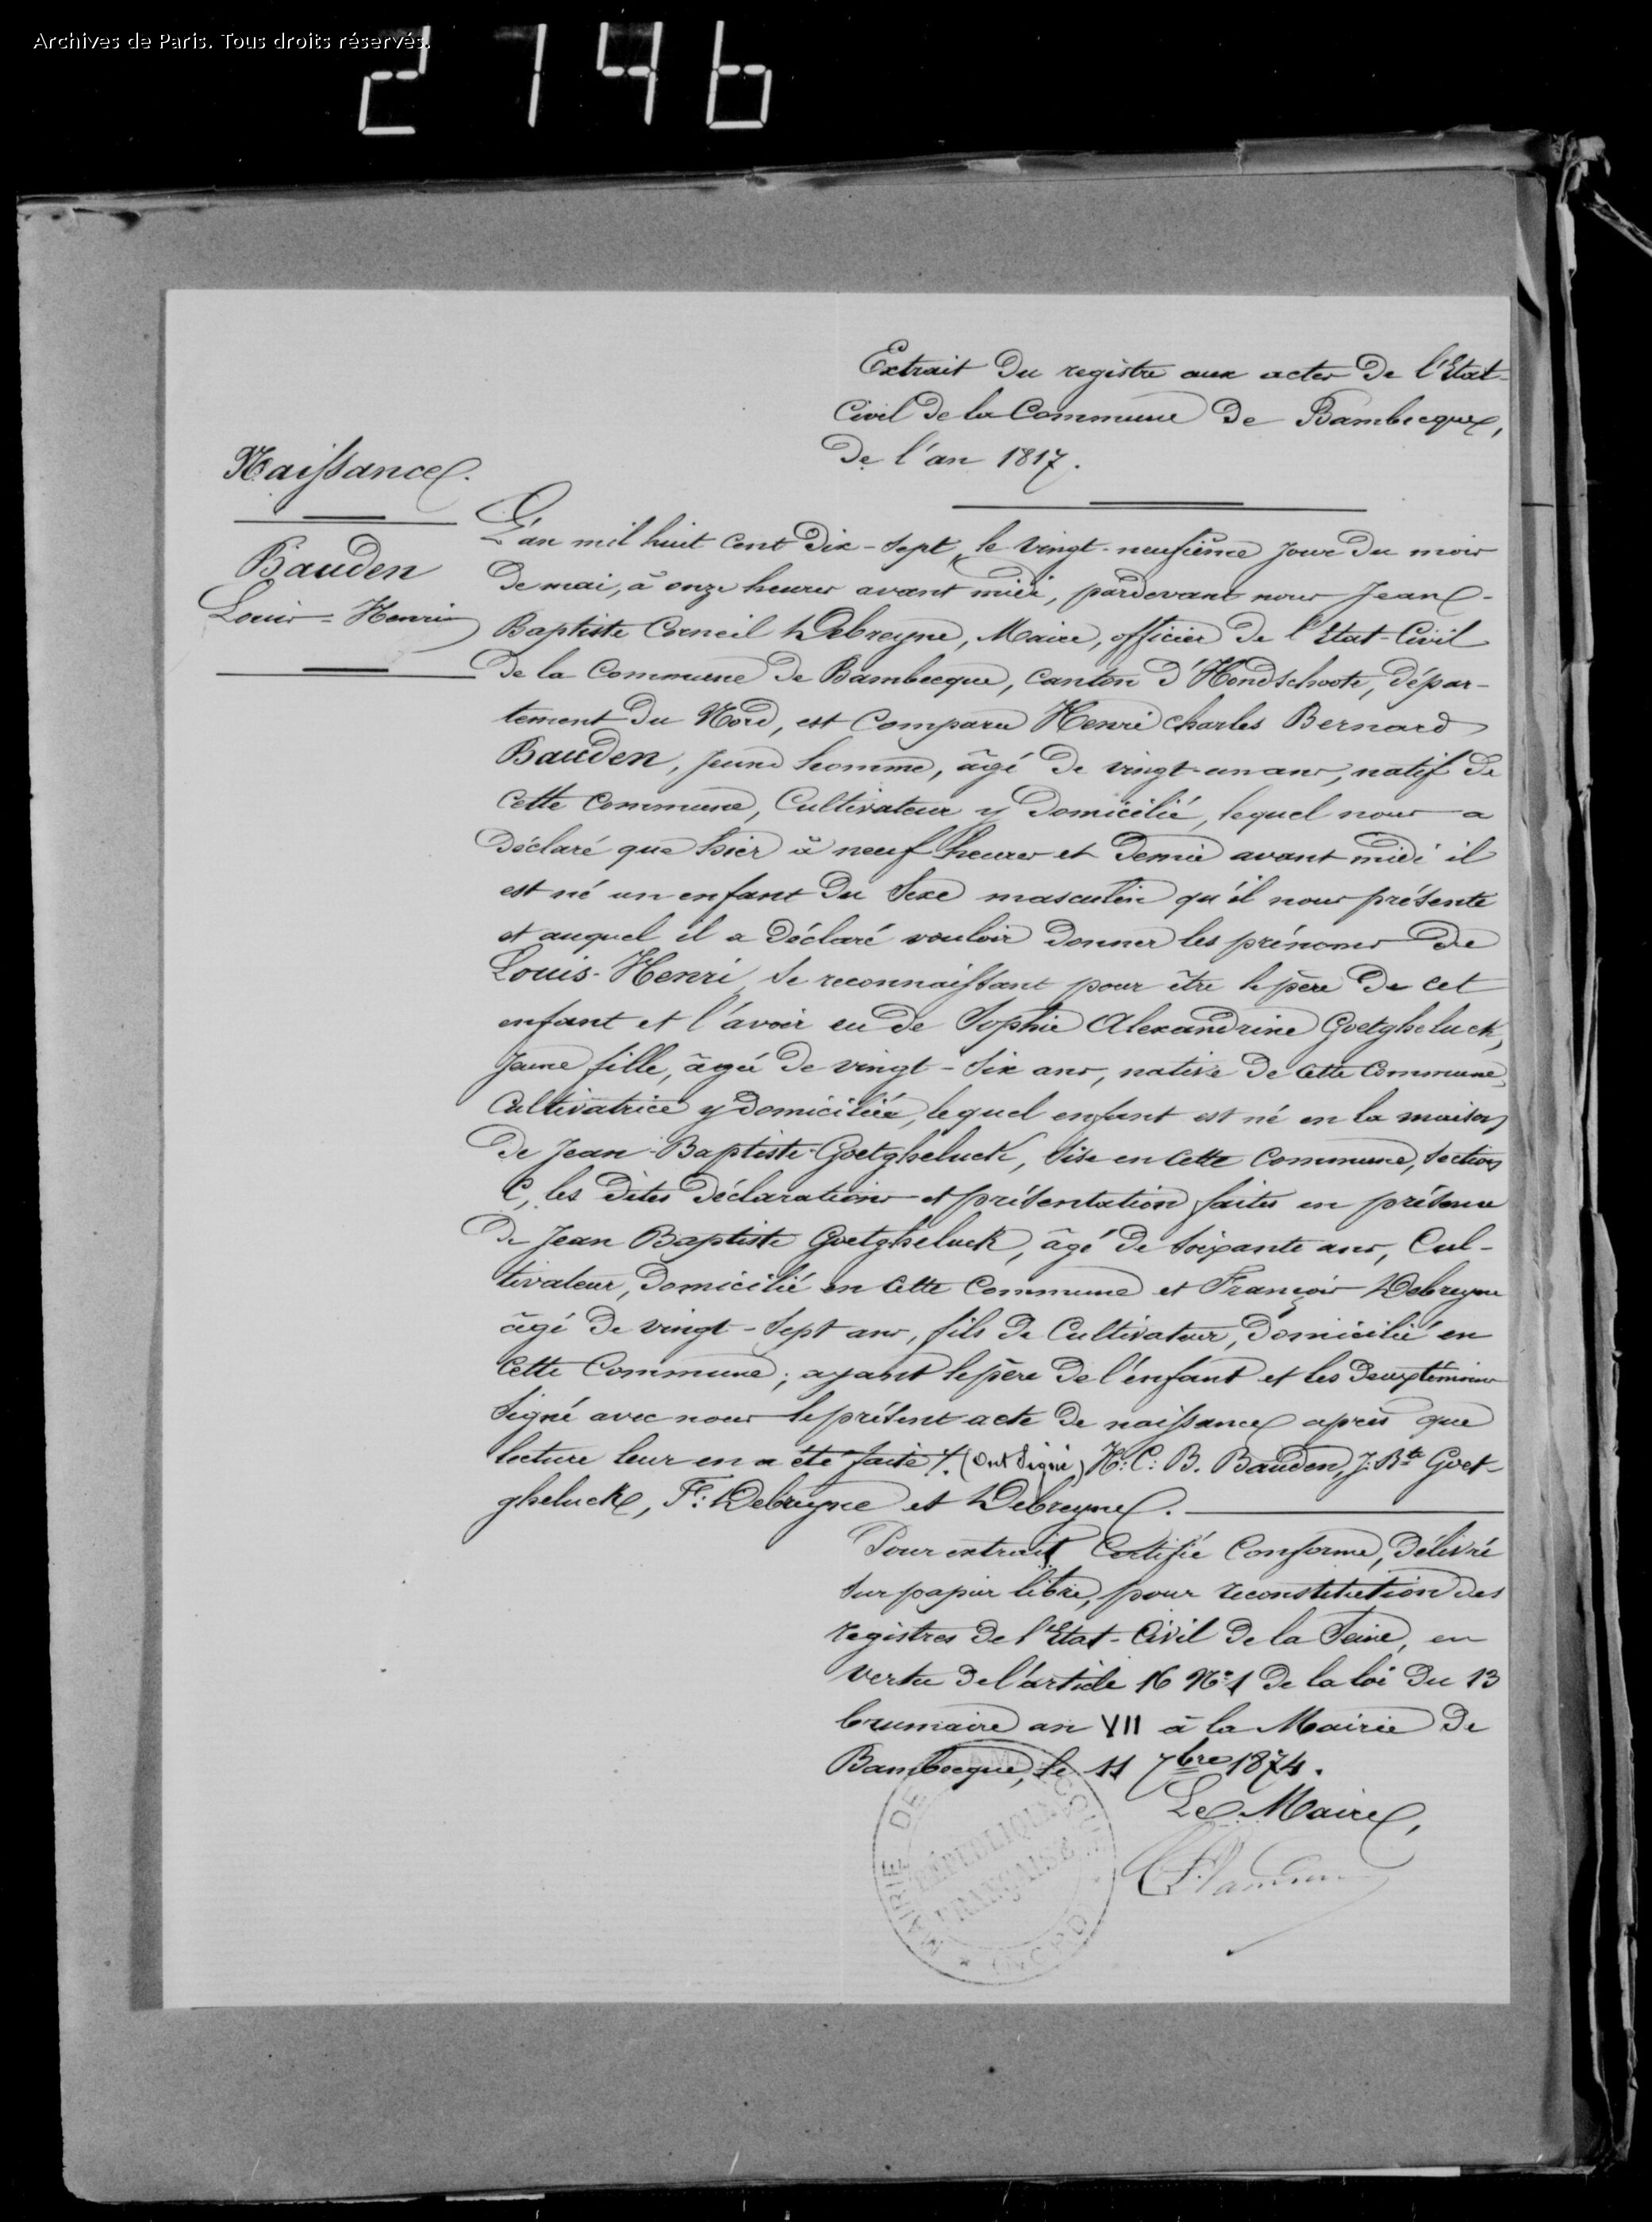 Archives de Paris. Tous droits réservés.
2746
Extrait du registre aux actes de l'Etat-
Civil de la Commune de Bambecque,
de l'an 1817.
Naissance.
Bauden
Louis-Henri
L'an mil huit cent dix-sept, le vingt-neufième jour du mois
de mai, à onze heures avant midi, pardevant nous Jean-
Baptiste Corneil Debreyne, Maire, officier de l'Etat-Civil
de la Commune de Bambecque, canton d'Hondschoote, dépar-
tement du Nord, est comparu Henri Charles Bernard
Bauden, jeune homme, âgé de vingt-un ans, natif de
cette Commune, Cultivateur y domicilié, lequel nous a
déclaré que hier à neuf heures et demie avant midi il
est né un enfant du sexe masculin qu'il nous présente
et auquel il a déclaré vouloir donner les prénoms de
Louis-Henri, se reconnaissant pour être le père de cet
enfant et l'avoir eu de Sophie Alexandrine Goetgheluck,
jeune fille, âgée de vingt-six ans, native de cette Commune,
Cultivatrice y domiciliée, lequel enfant est né en la maison
de Jean-Baptiste Goetgheluck, sise en cette Commune, section
C, les dites déclaration et présentation faites en présence
de Jean Baptiste Goetgheluck, âgé de soixante ans, Cul-
tivateur, domicilié en cette Commune et François Debreyne
âgé de vingt-sept ans, fils de Cultivateur, domicilié en
cette Commune; ayant le père de l'enfant et les deux témoins
signé avec nous le présent acte de naissance après que
lecture leur en a été faite /. (ont signé) H: C: B. Bauden, J. Bte Goet-
gheluck, F: Debreyne et Debreyne.
Pour extrait Certifié Conforme, délivré
sur papier libre, pour reconstitution des
registres de l'Etat-Civil de la Seine, en
vertu de l'article 16 N° 1 de la loi du 13
brumaire an VII à la Mairie de
Bambecque, le 11 7bre 1874.
Le Maire,
MAIRIE DE BAMBECQUE
RÉPUBLIQUE
FRANÇAISE
(NORD)